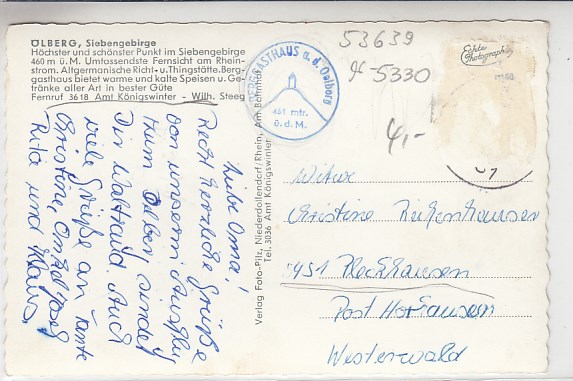 ÖLBERG, Siebengebirge
Höchster und schönster Punkt im Siebengebirge
460 m ü. M. Umfassendste Fernsicht am Rhein-
strom. Altgermanische Richt- u. Thingstätte. Berg-
gasthaus bietet warme und kalte Speisen u. Ge-
tränke aller Art in bester Güte
Fernruf 3618 Amt Königswinter - Wilh. Steeg
BERGGASTHAUS a. d. Oelberg
461 mtr.
ü. d. M.
53639
5330
4,-
Echte
Photographie
Liebe Oma!
Recht herzliche Grüße
von unserm Ausflug
zum Ölberg sendet
Dir Waltraud. Auch
viele Grüße an Tante
Christine, Onkel Josef
Rita und Klaus.
Verlag Foto-Pilz, Niederdollendorf/Rhein, Am Bahnhof
Tel. 3036 Amt Königswinter
Witwe
Christine
5451
Post
Westerwald